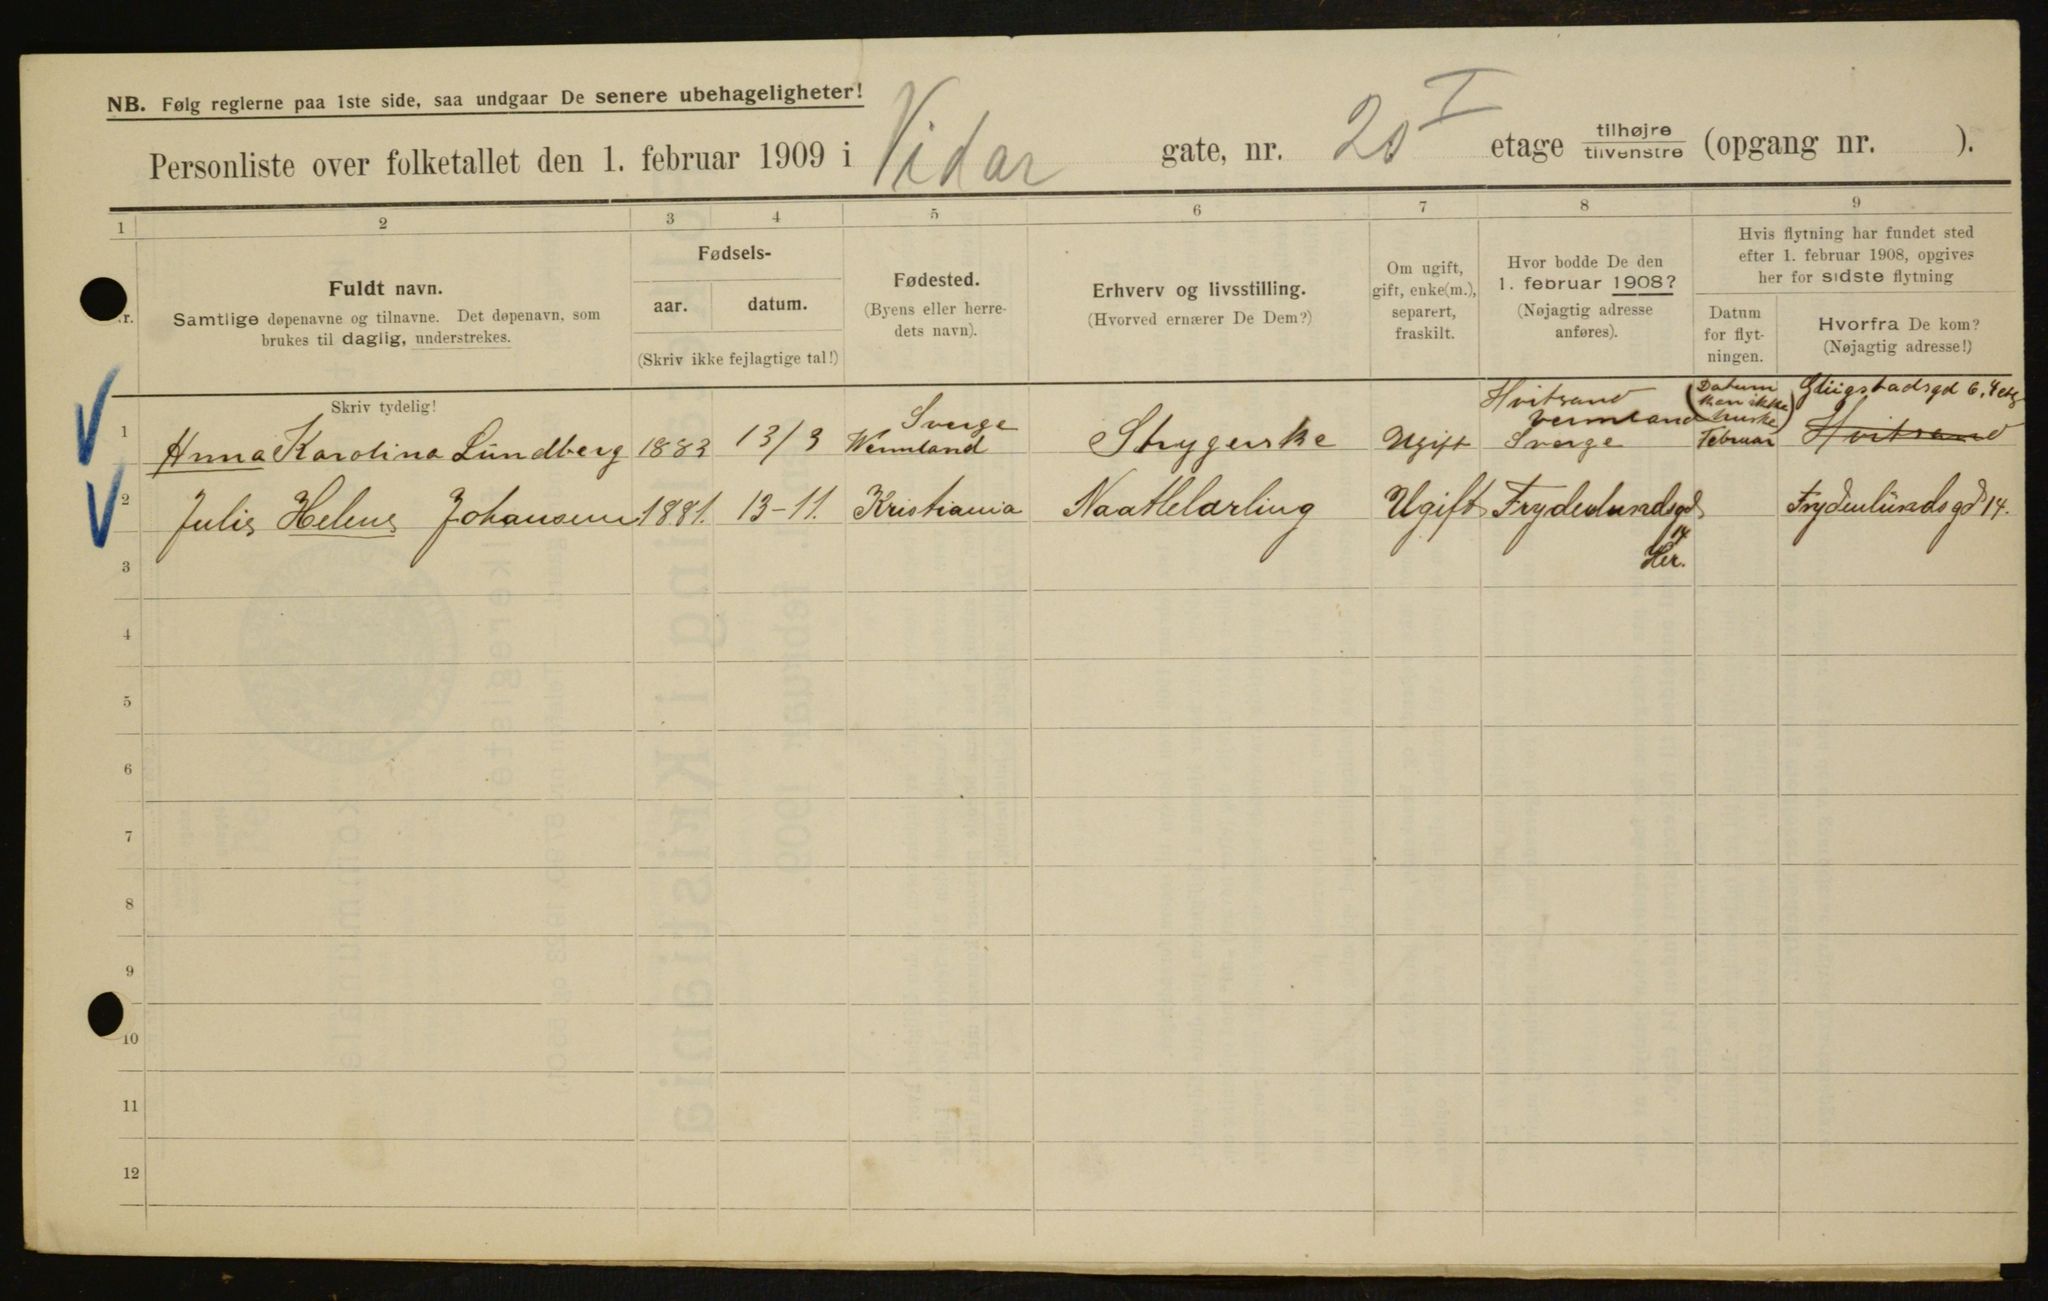 NB. Følg reglerne paa 1ste side, saa undgaar De senere ubehageligheter!
Personliste over folketallet den 1. februar 1909 i Vidar gate, nr. 20 I etage tilhøjre/tilvenstre (opgang nr. ).
1 2 3 4 5 6 7 8 9
Nr.
Fuldt navn.
Samtlige døpenavne og tilnavne. Det døpenavn, som
brukes til daglig, understrekes.
Skriv tydelig!
Fødsels-
aar. datum.
(Skriv ikke fejlagtige tal!)
Fødested.
(Byens eller herre-
dets navn).
Erhverv og livsstilling.
(Hvorved ernærer De Dem?)
Om ugift,
gift, enke(m.),
separert,
fraskilt.
Hvor bodde De den
1. februar 1908?
(Nøjagtig adresse
anføres).
Hvis flytning har fundet sted
efter 1. februar 1908, opgives
her for sidste flytning
Datum
for flyt-
ningen.
Hvorfra De kom?
(Nøjagtig adresse!)
1 Anna Karolina Lundberg 1883 13/3 Sverge
Wermland Strygerske Ugift Hvitsand
Vermland
Sverge (Datum
kan ikke
huske)
Februar Glügstadsgd 6, 4 etg
Hvitsand
2 Julie Helene Johansen 1881. 13-11. Kristiania Naatlelærling Ugift Frydenlundsgd
14
Her. Frydenlundsgd 14.
3
4
5
6
7
8
9
10
11
12